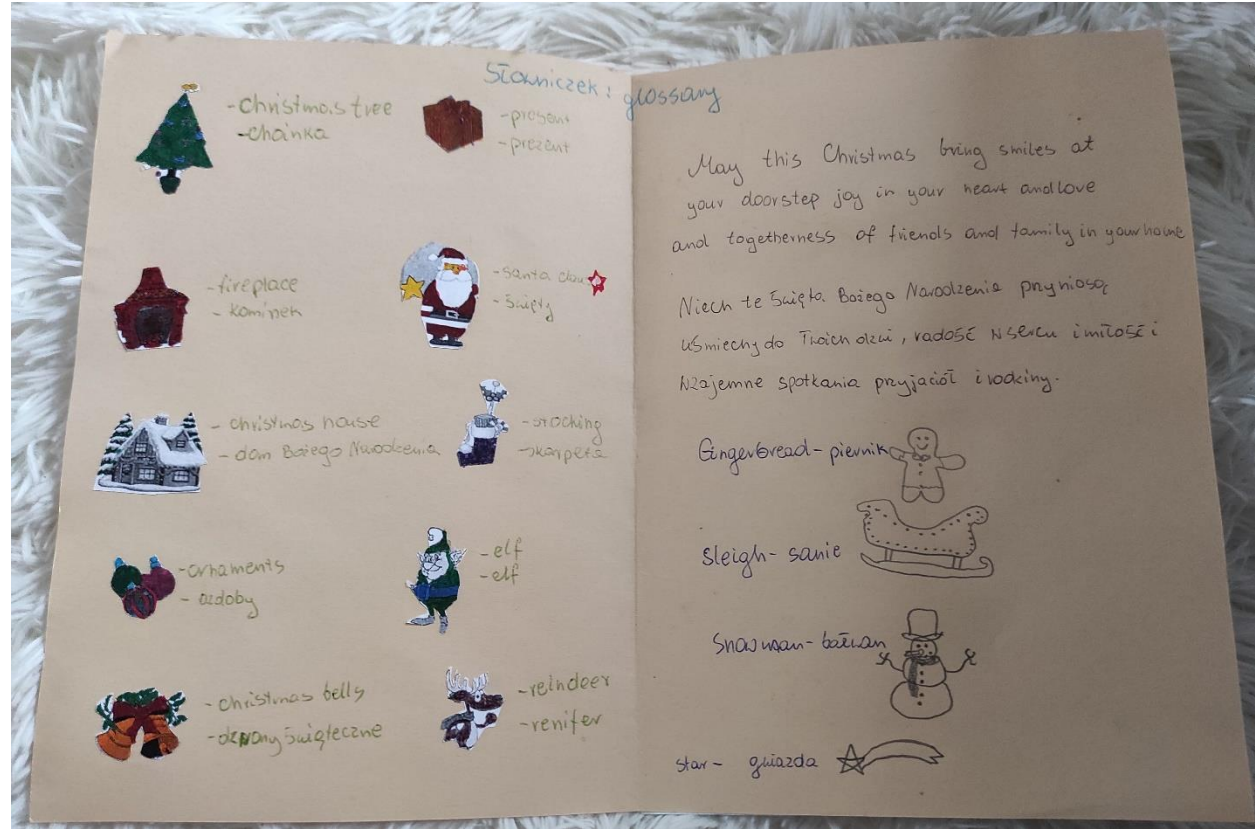 Słowniczek : glossary
- Christmas tree
- choinka
- present
- prezent
- fireplace
- kominek
- santa claus
- święty
- christmas house
- dom Bożego Narodzenia
- stocking
- skarpeta
- ornaments
- ozdoby
- elf
- elf
- christmas bells
- dzwony świąteczne
- reindeer
- renifer
May this Christmas bring smiles at
your doorstep joy in your heart and love
and togetherness of friends and family in your home
Niech te Święta Bożego Narodzenia przyniosą
uśmiechy do Twoich drzwi, radość w sercu i miłość i
wzajemne spotkania przyjaciół i rodziny.
Gingerbread - piernik
Sleigh - sanie
Snowman - bałwan
star - gwiazda